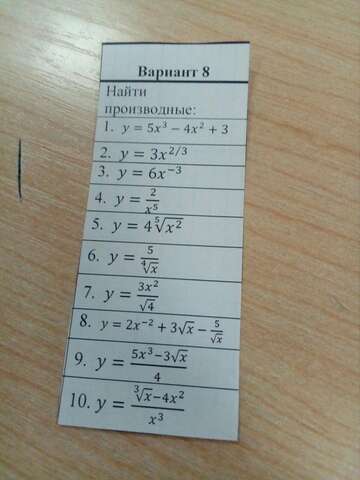 Вариант 8
Найти
производные:
1. y = 5x³ − 4x² + 3
2. y = 3x^{2/3}
3. y = 6x⁻³
4. y = \frac{2}{x^5}
5. y = 4\sqrt[5]{x^2}
6. y = \frac{5}{\sqrt[4]{x}}
7. y = \frac{3x^2}{\sqrt{4}}
8. y = 2x⁻² + 3√x − \frac{5}{\sqrt{x}}
9. y = \frac{5x^3−3\sqrt{x}}{4}
10. y = \frac{\sqrt[3]{x}−4x^2}{x^3}